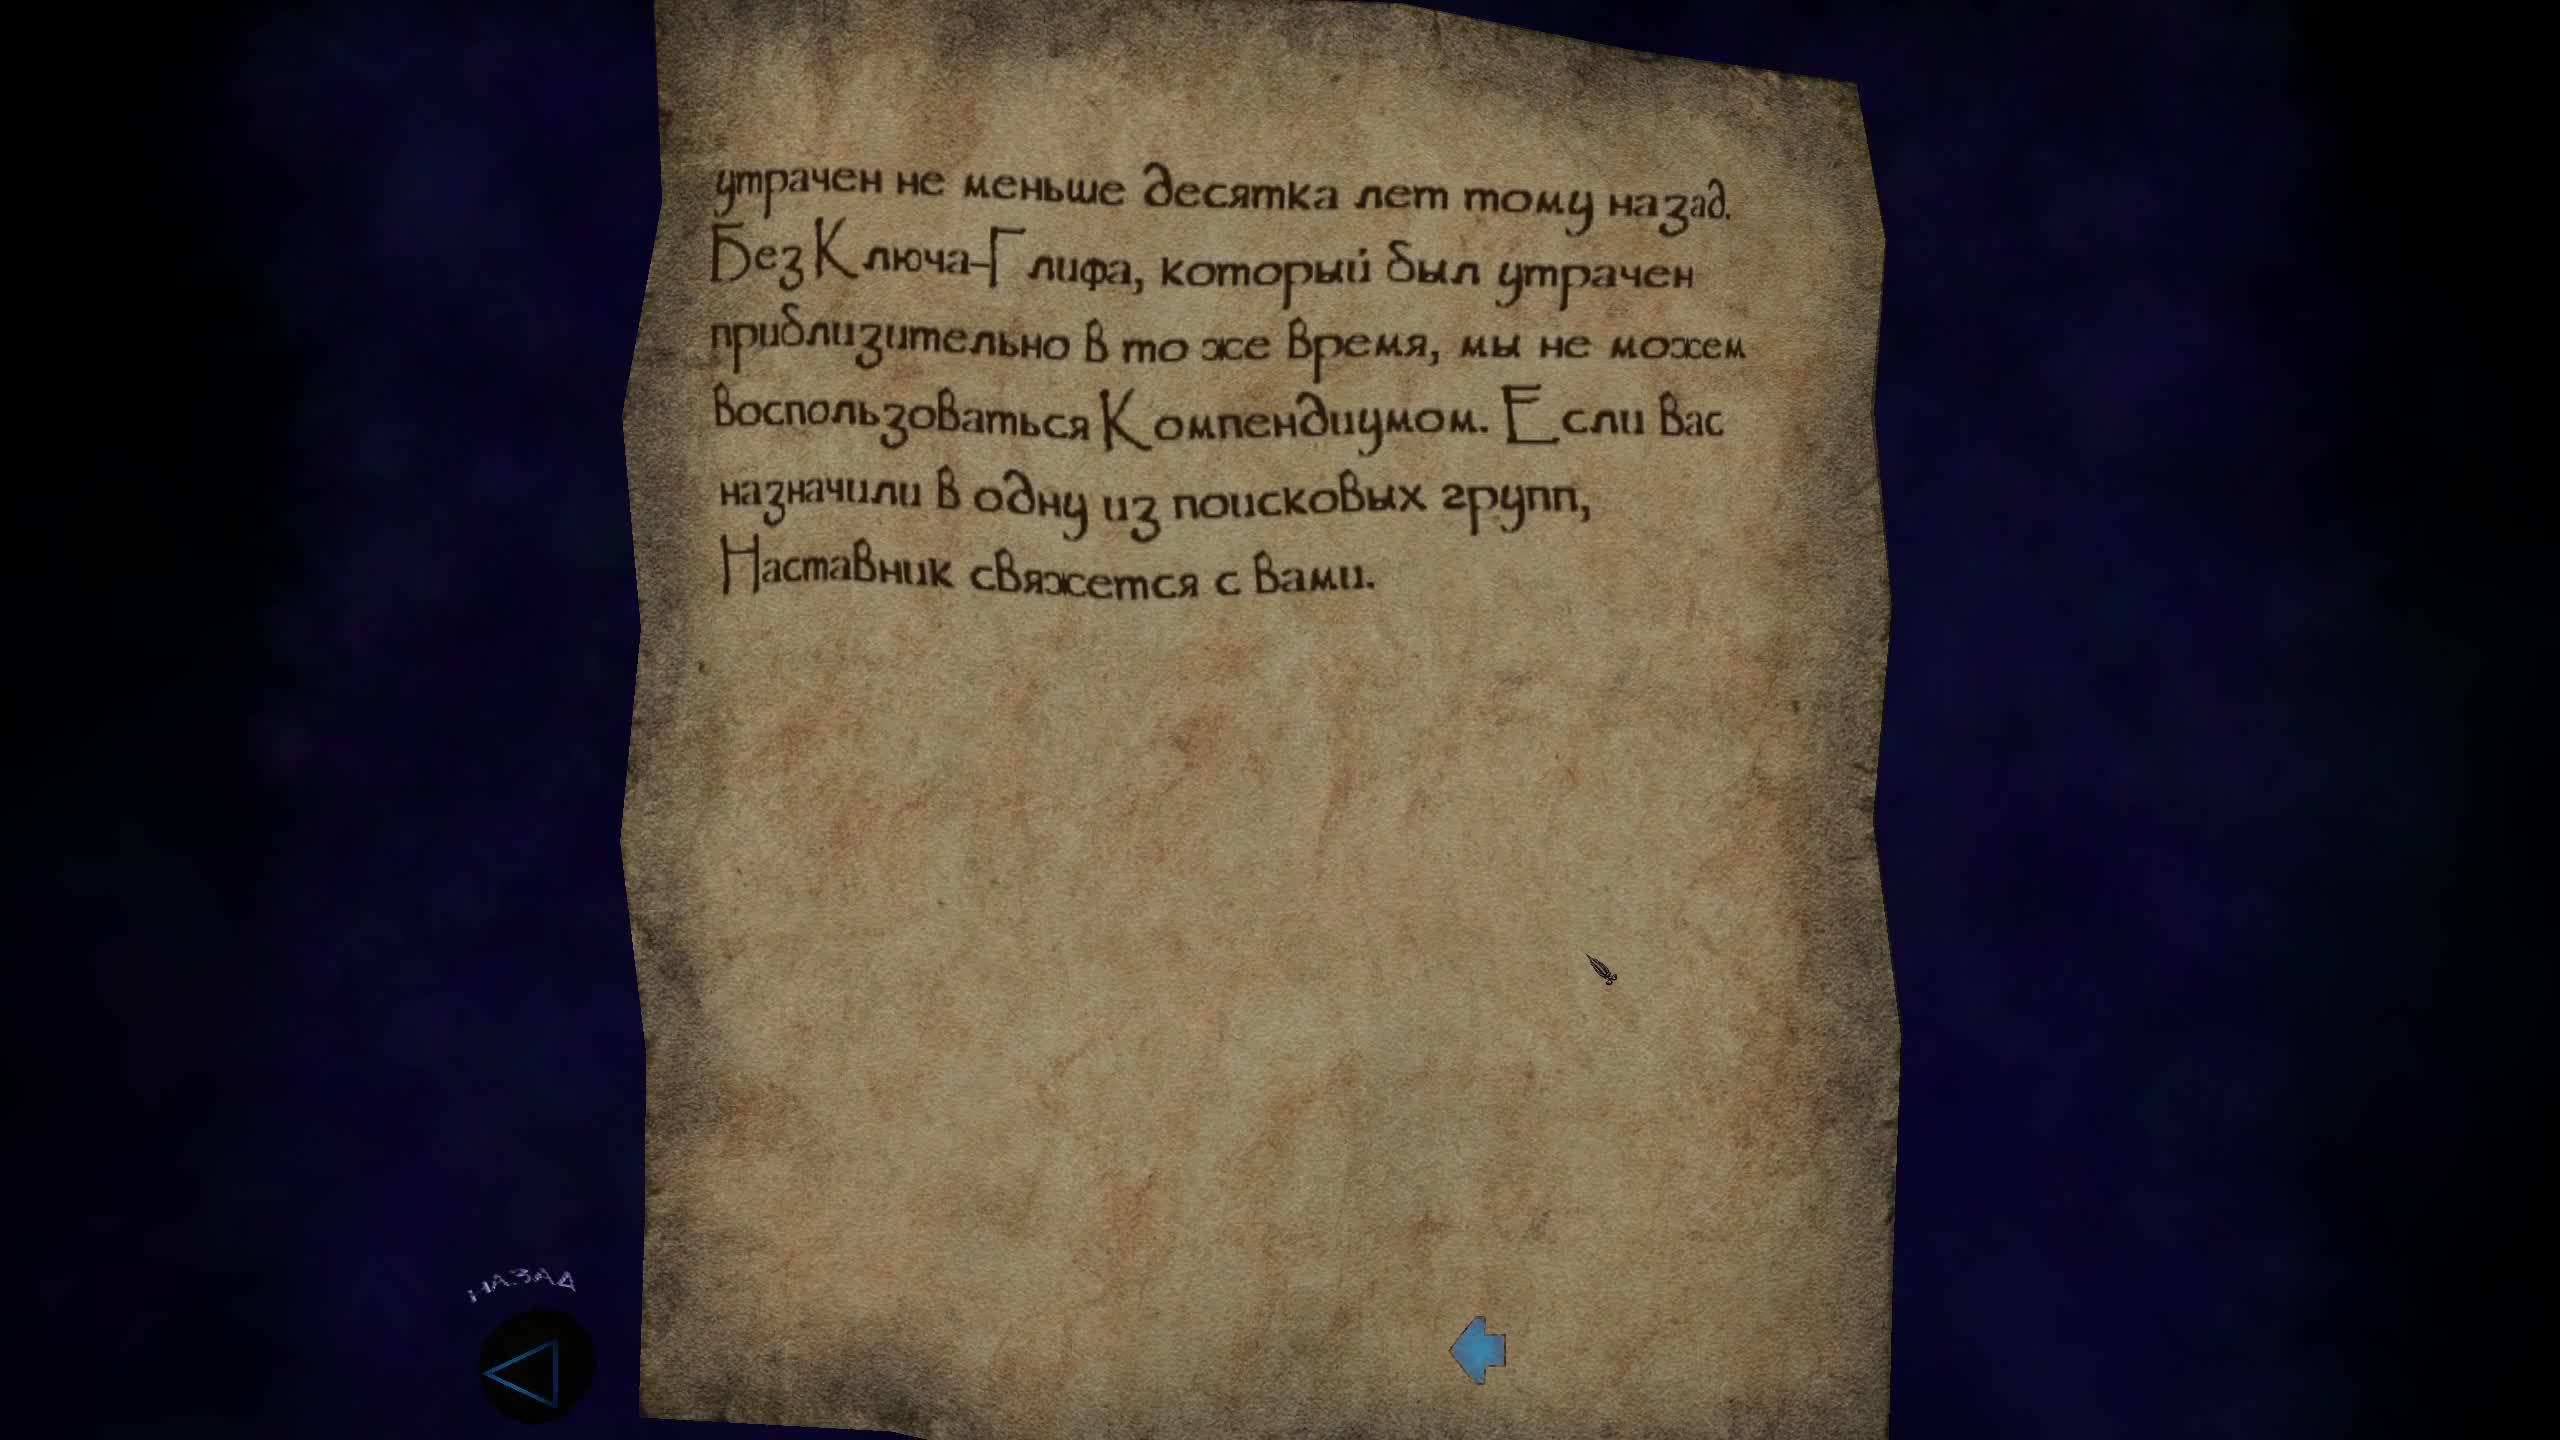 утрачен не меньше десятка лет тому назад.
Без Ключа-Глифа, который был утрачен
приблизительно в то же время, мы не можем
воспользоваться Компендиумом. Если вас
назначили в одну из поисковых групп,
Наставник свяжется с вами.
НАЗАД